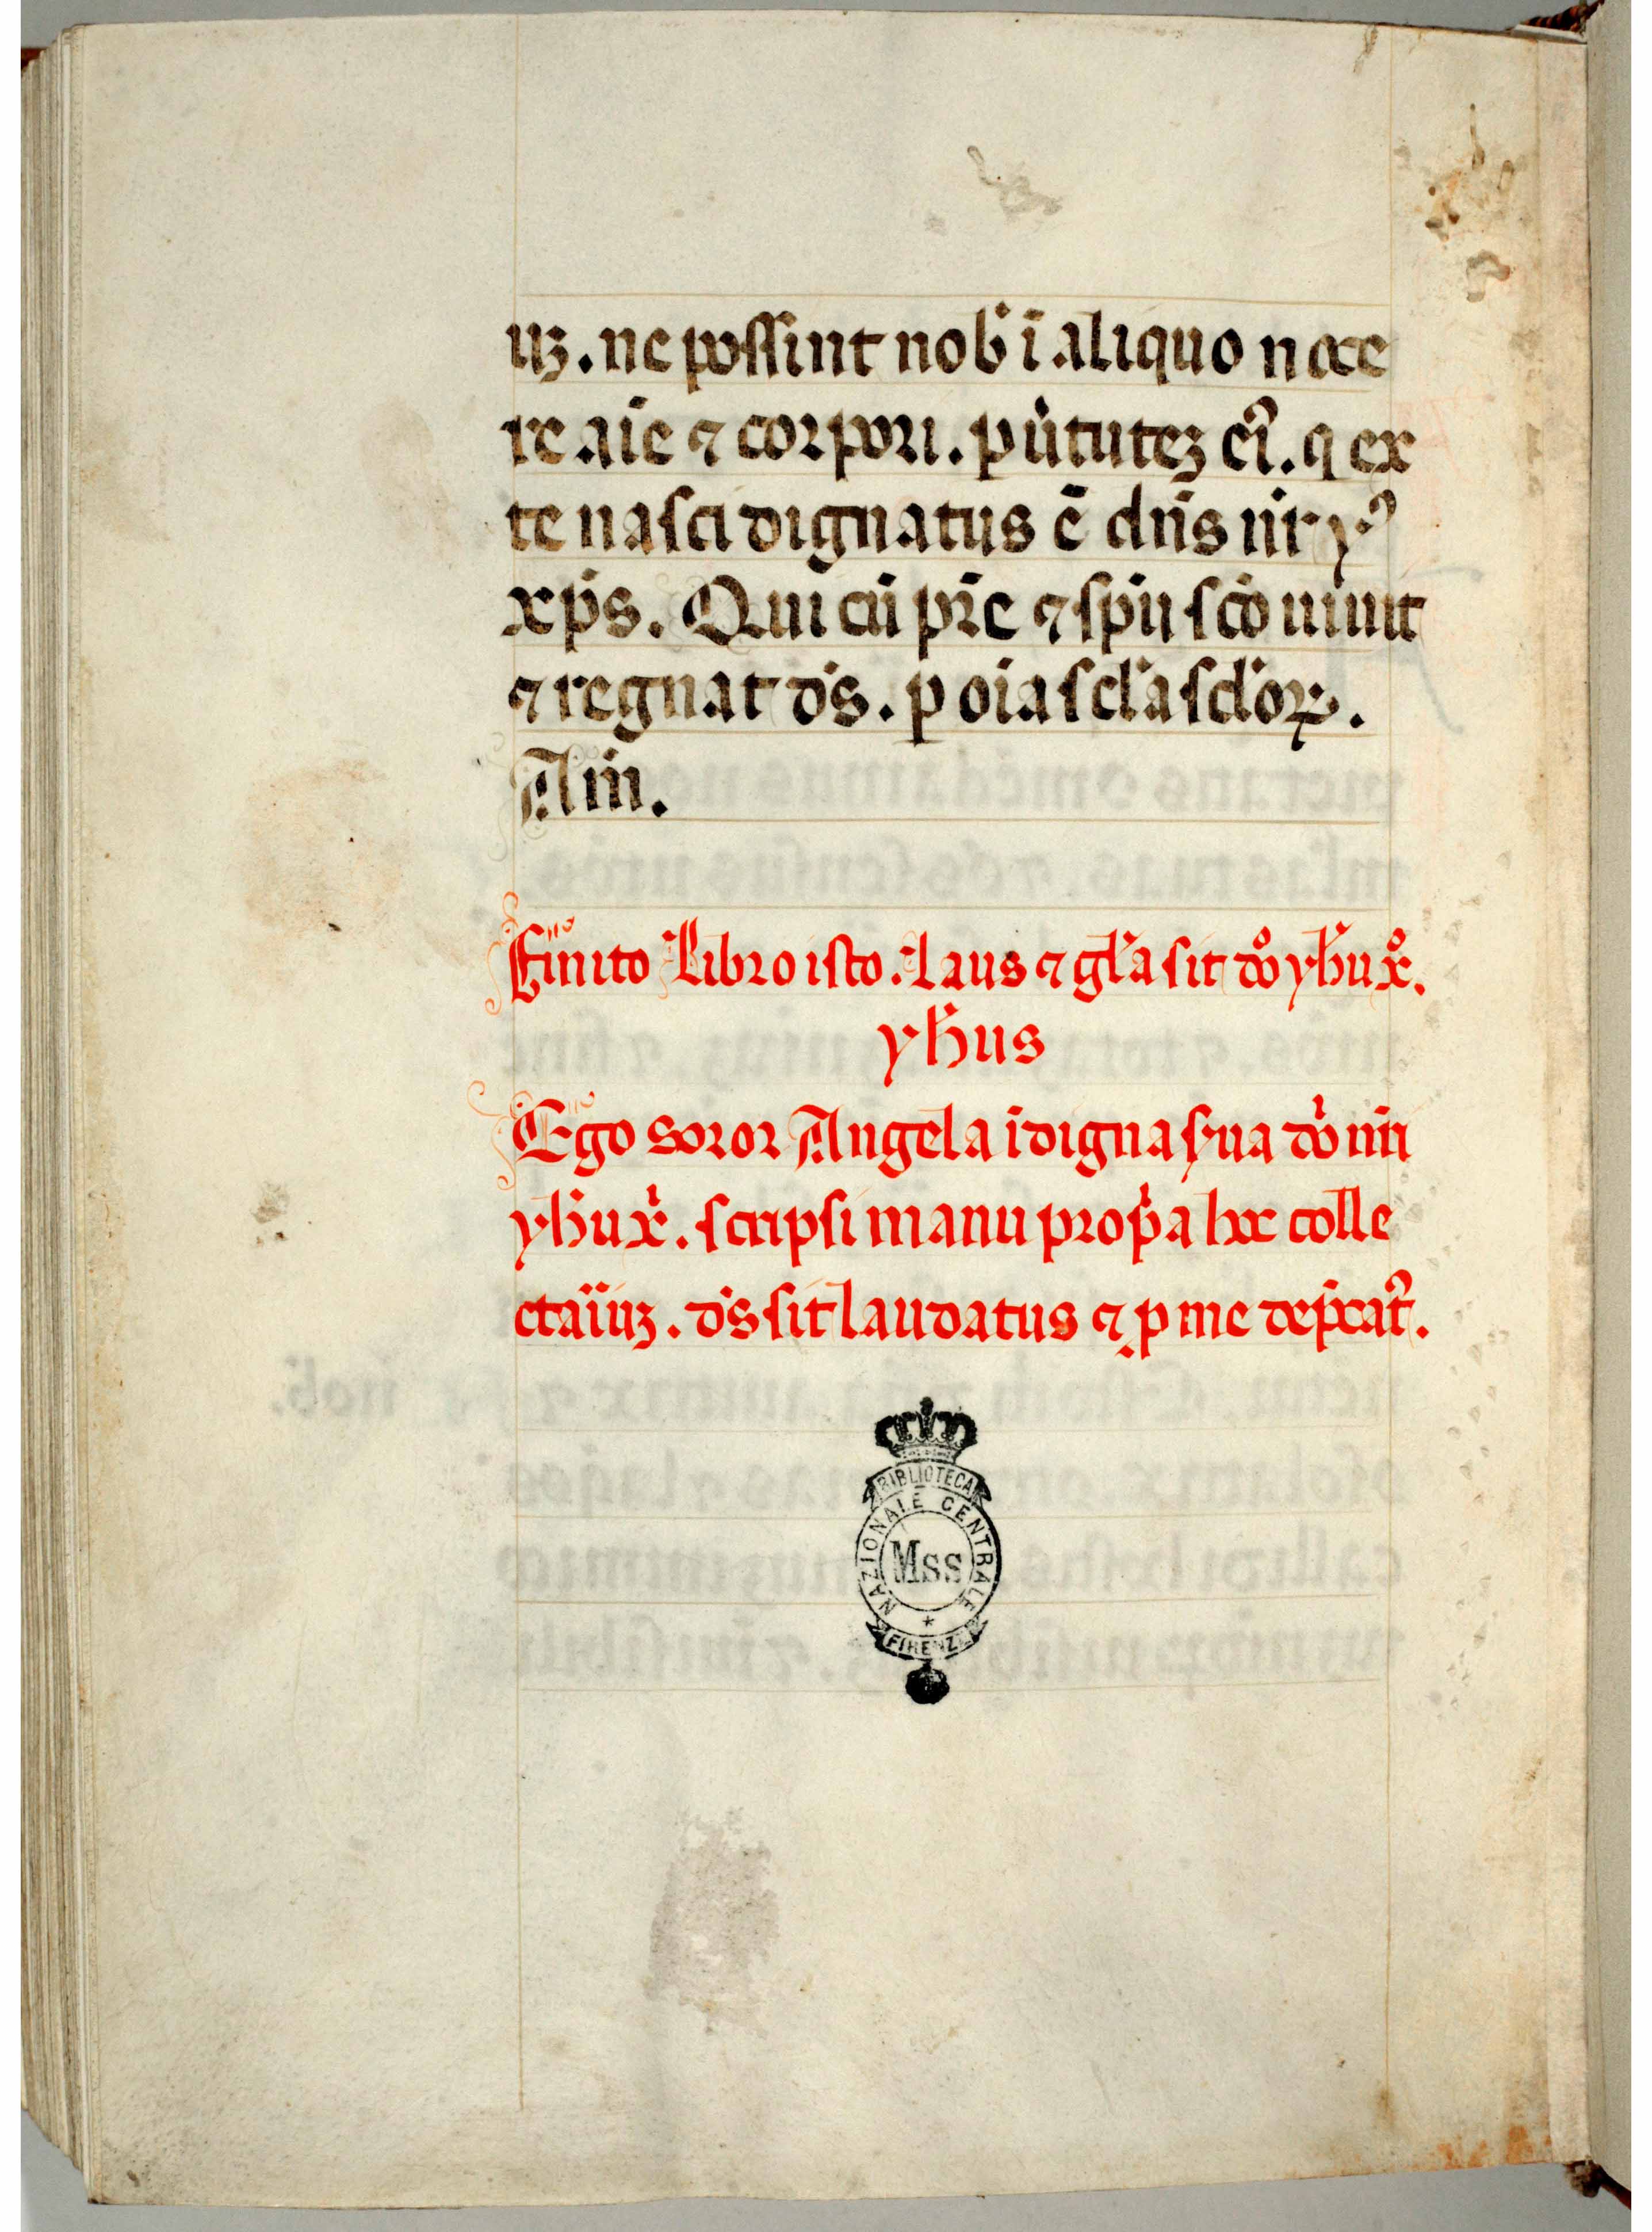 uꝫ. ne possint nob̄ ī aliquo noce
re aīe ⁊ corpori. p̱ ūtuteꝫ eī. q ex
te nasci dignatus ē dn̄s nr̄ yꝰ
xp̄s. Qui cū pr̄e ⁊ sp̄u scō uiuit
⁊ regnat ds̄. p̱ oīa scl̄a scl̄oꝝ.
Am̄.
Finito Libro isto. laus ⁊ gl̄a sit dōo yh̄u xº.
yh̄us
Ego soror Angela īdigna s̄ua dō nr̄i
yh̄u xi. scripsi manu prop̄a hoc colle
ctariuꝫ. ds̄ sit laudatus ⁊ p̱ me dep̄cat᷑.
BIBLIOTECA
NAZIONALE CENTRALE
Mss
*
FIRENZE